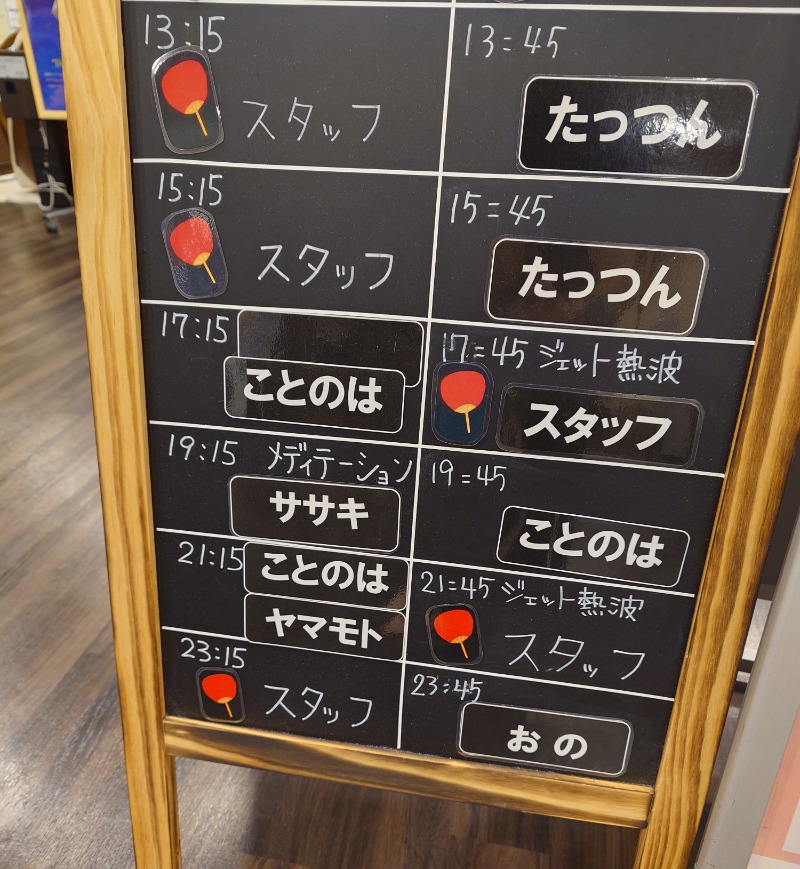 13:15
スタッフ
13=45
たっつん
15:15
スタッフ
15=45
たっつん
17:15
ことのは
17=45 ジェット熱波
スタッフ
19:15 メディテーション
ササキ
19=45
ことのは
21:15
ことのは
ヤマモト
21=45 ジェット熱波
スタッフ
23:15
スタッフ
23:45
おの